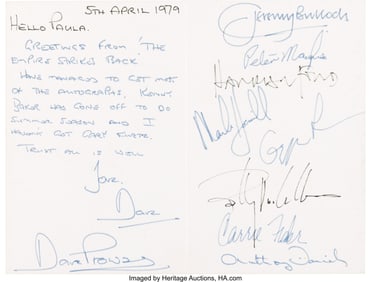 5TH APRIL 1979
HELLO PAULA.
GREETINGS FROM 'THE
EMPIRE STRIKES BACK'
HAVE MANAGED TO GET MOST
OF THE AUTOGRAPHS, KENNY
BAKER HAS GONE OFF TO DO
SUMMER SEASON AND I
HAVEN'T GOT
TRUST ALL IS WELL
Dave
Dave Prowse
Jeremy Bulloch
Peter Mayhew
HARRISON FORD
Mark Hamill
Billy Dee Williams
Carrie Fisher
Anthony Daniels
Imaged by Heritage Auctions, HA.com